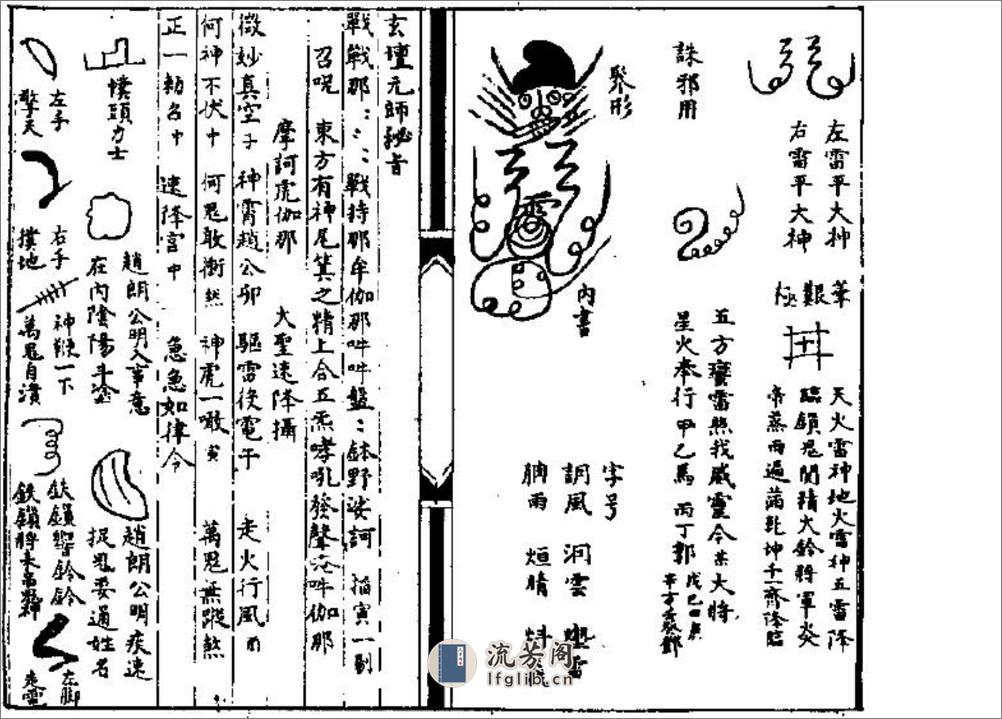 左雷平大神
右雷平大神
筆
艱
極
天火雷神地火雷神五雷降
臨鎖鬼關精火鈴將軍炎
帝蒸雨遍滿乾坤千一齊降臨
誅邪用
五方蠻雷照我威靈今
大將
星火奉行甲乙馬丙丁郭
聚形
內書
字号
調風 洞雲 雷
雨 烜晴
玄壇元帥秘音
戰戰那
戰持那牟伽那吽吽盤
鉢野娑訶 搯寅一剔
召呪 東方有神尾箕之精上合五炁哮吼發聲
吽伽那
摩訶虎伽那 大聖速降攝
微妙真空子 神霄趙公卯 驅雷役電午 走火行風
何神不伏中 何鬼敢衝然 神虎一噉寅 萬鬼無蹤煞
正一勅召中 速降宫中 急急如律令
幞頭力士
趙朗公明入事意
在內陰陽斗
趙朗公明疾速
捉鬼 姓名
左手
擎天
右手
撲地
神鞭一下
萬鬼自潰
鉄鎖響鈴鈴
鉄鎖將來
左脚
走電
流芳阁
lfglib.cn